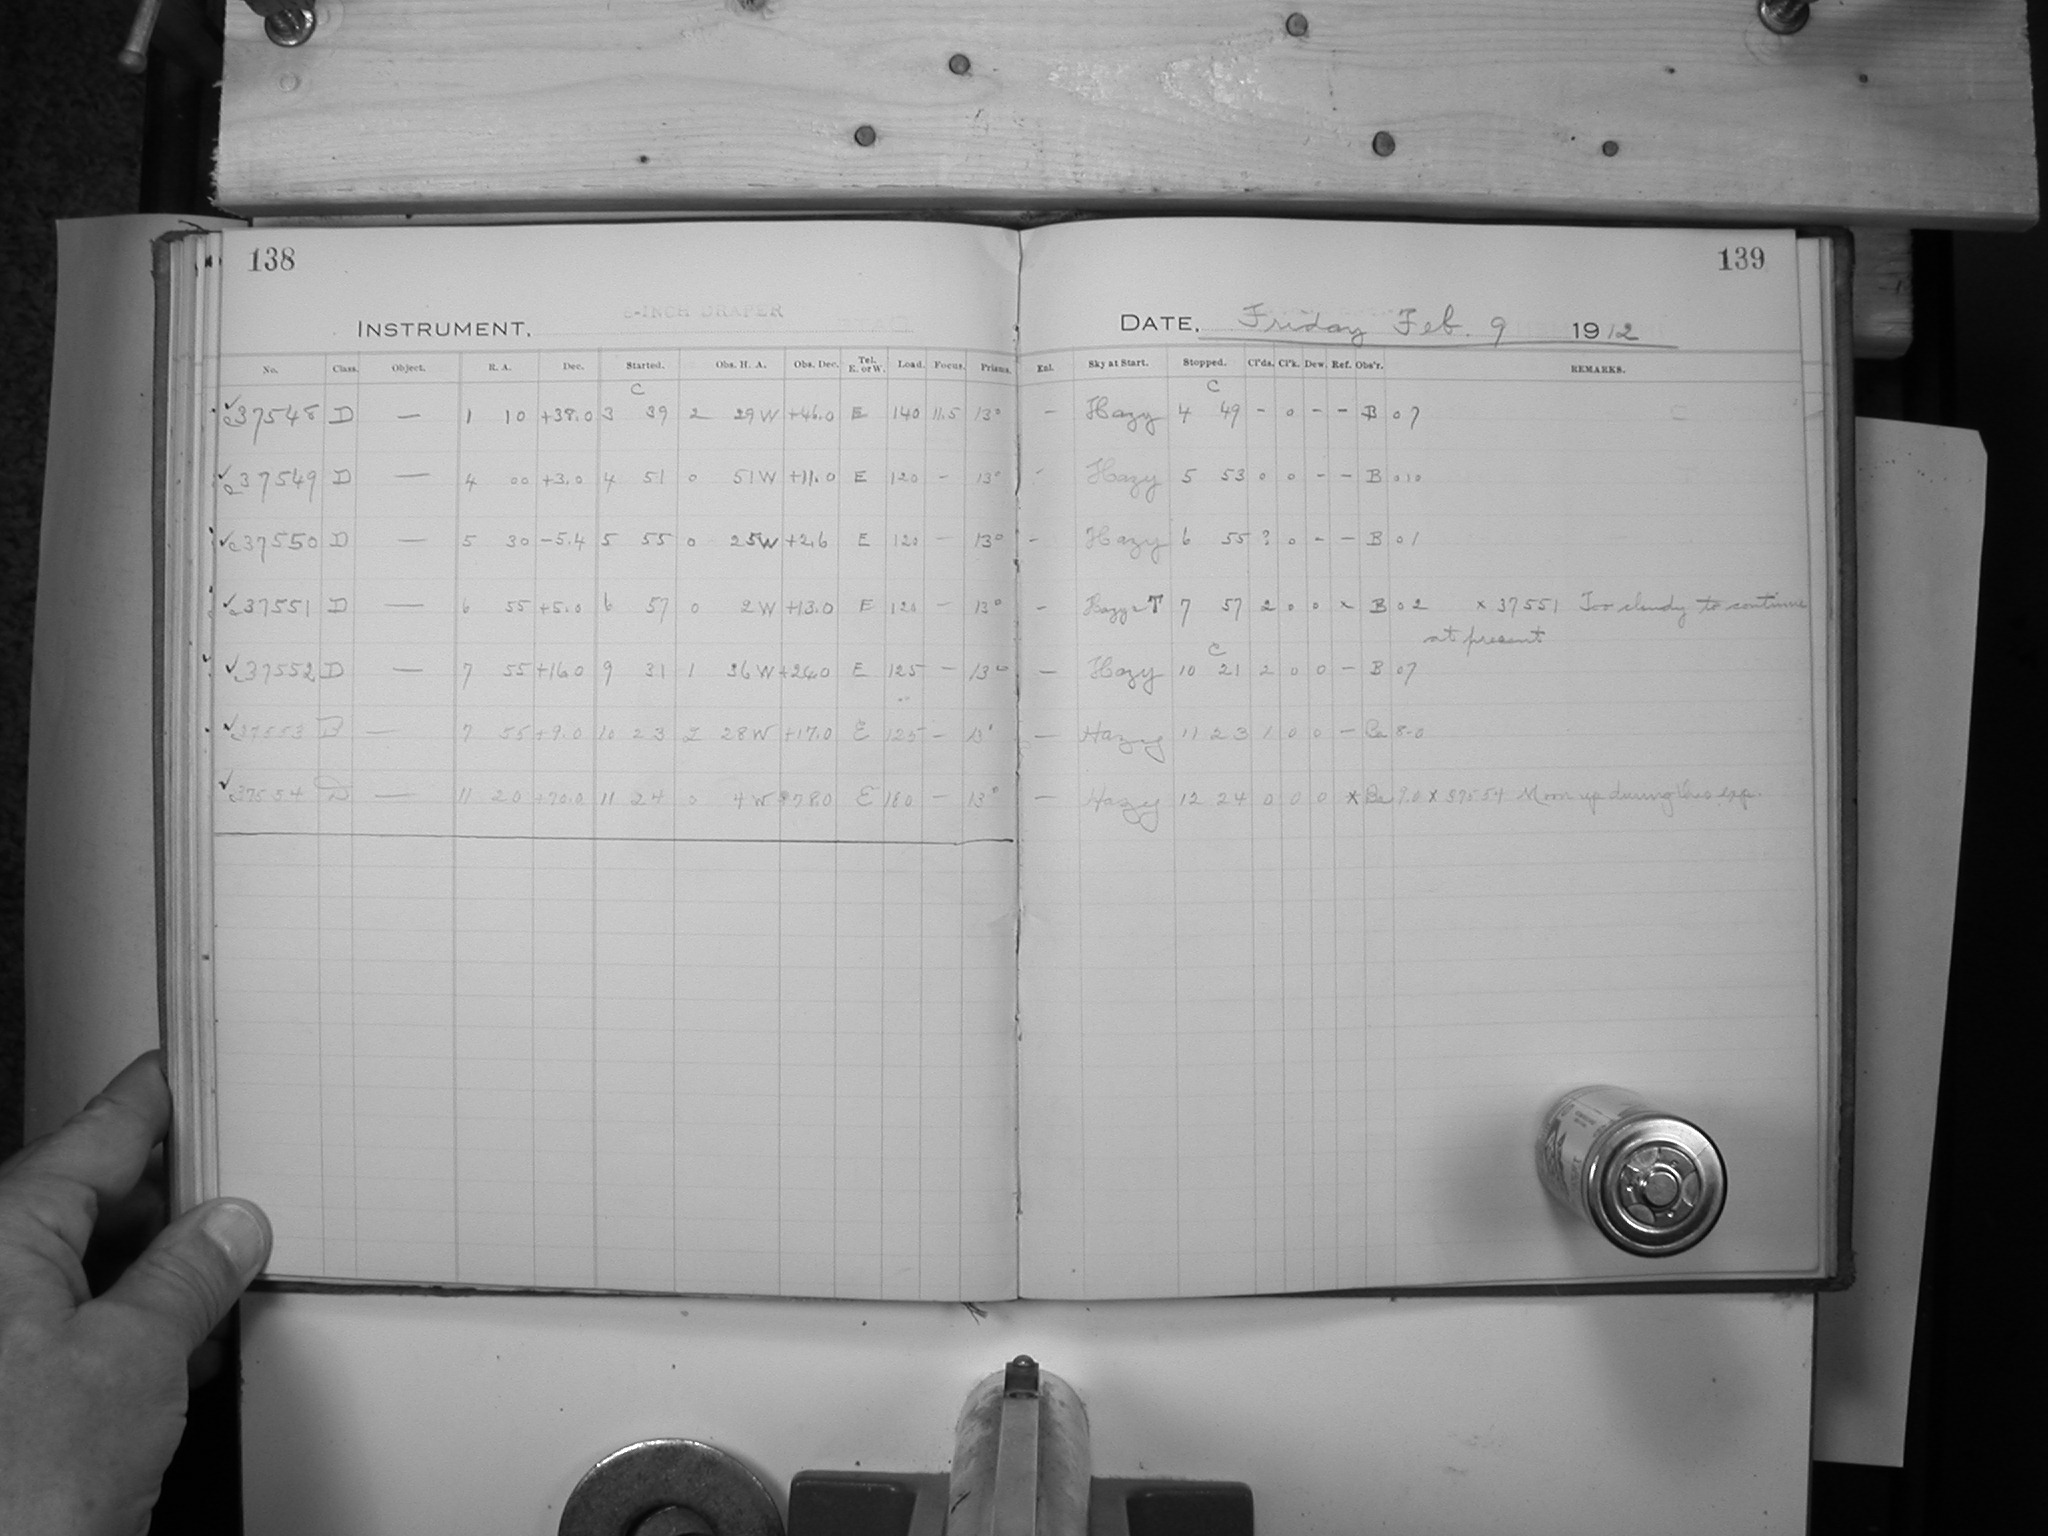 138
139
INSTRUMENT.
8-INCH DRAPER
DATE, Friday Feb. 9 1912
No. Class. Object. R. A. Dec. Started. Obs. H. A. Obs. Dec. Tel. E. or W. Load. Focus. Prisms. Enl. Sky at Start. Stopped. Cl'ds. Cl'k. Dew. Ref. Obs'r. REMARKS.
C C
✓c37548 D — 1 10 +38.0 3 39 2 29 W +46.0 E 140 11.5 13° – Hazy 4 49 – 0 – – B 07
✓c37549 D — 4 00 +3.0 4 51 0 51 W +11.0 E 120 – 13° – Hazy 5 53 0 0 – – B 010
✓c37550 D — 5 30 –5.4 5 55 0 25 W +2.6 E 120 – 13° – Hazy 6 55 ? 0 – – B 01
✓c37551 D — 6 55 +5.0 6 57 0 2 W +13.0 E 120 – 13° – Hazy 2 T 7 57 2 0 0 x B 02 x 37551 Too cloudy to continue
at present
C
✓c37552 D — 7 55 +16.0 9 31 1 36 W +24.0 E 125 – 13° – Hazy 10 21 2 0 0 – B 07
✓c37553 D — 7 55 +9.0 10 23 2 28 W +17.0 E 125 – 13° – Hazy 11 23 1 0 0 – Ba 8.0
✓c37554 D — 11 20 +70.0 11 24 0 4 W +78.0 E 180 – 13° – Hazy 12 24 0 0 0 x Ba 9.0 x 37554 Moon up during this exp.